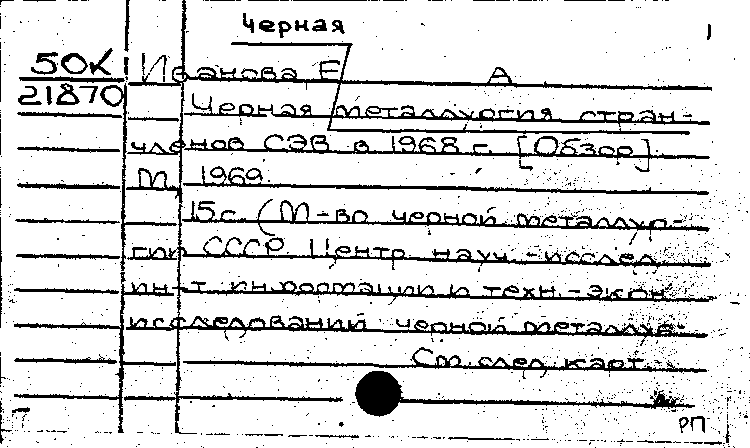 Черная
1
50К Иванова Е А
21870 Черная металлургия стран-
членов СЭВ в 1968 г. [Обзор]
М, 1969.
15 с. (М-во черной металлур-
гии СССР. Центр науч.-исслед.
ин-т информации и техн.-экон.
исследований черной металлур-
См. след. карт.
РП